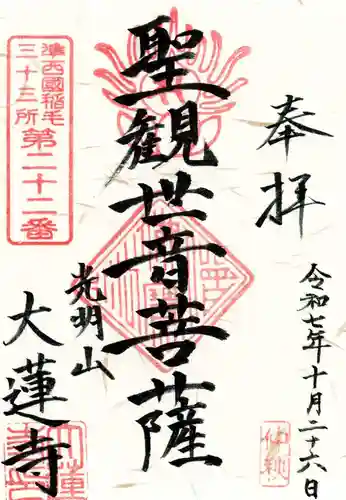 奉拝
令和七年十月二十六日
聖観世音菩薩
光明山
大蓮寺
準西國稲毛
三十三所
第二十二番